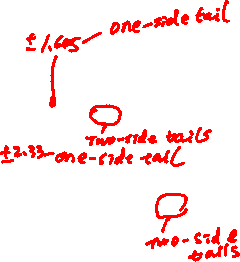 one-side tail
± 1.645
two-side tails
±2.33 one-side tail
two-side
tails